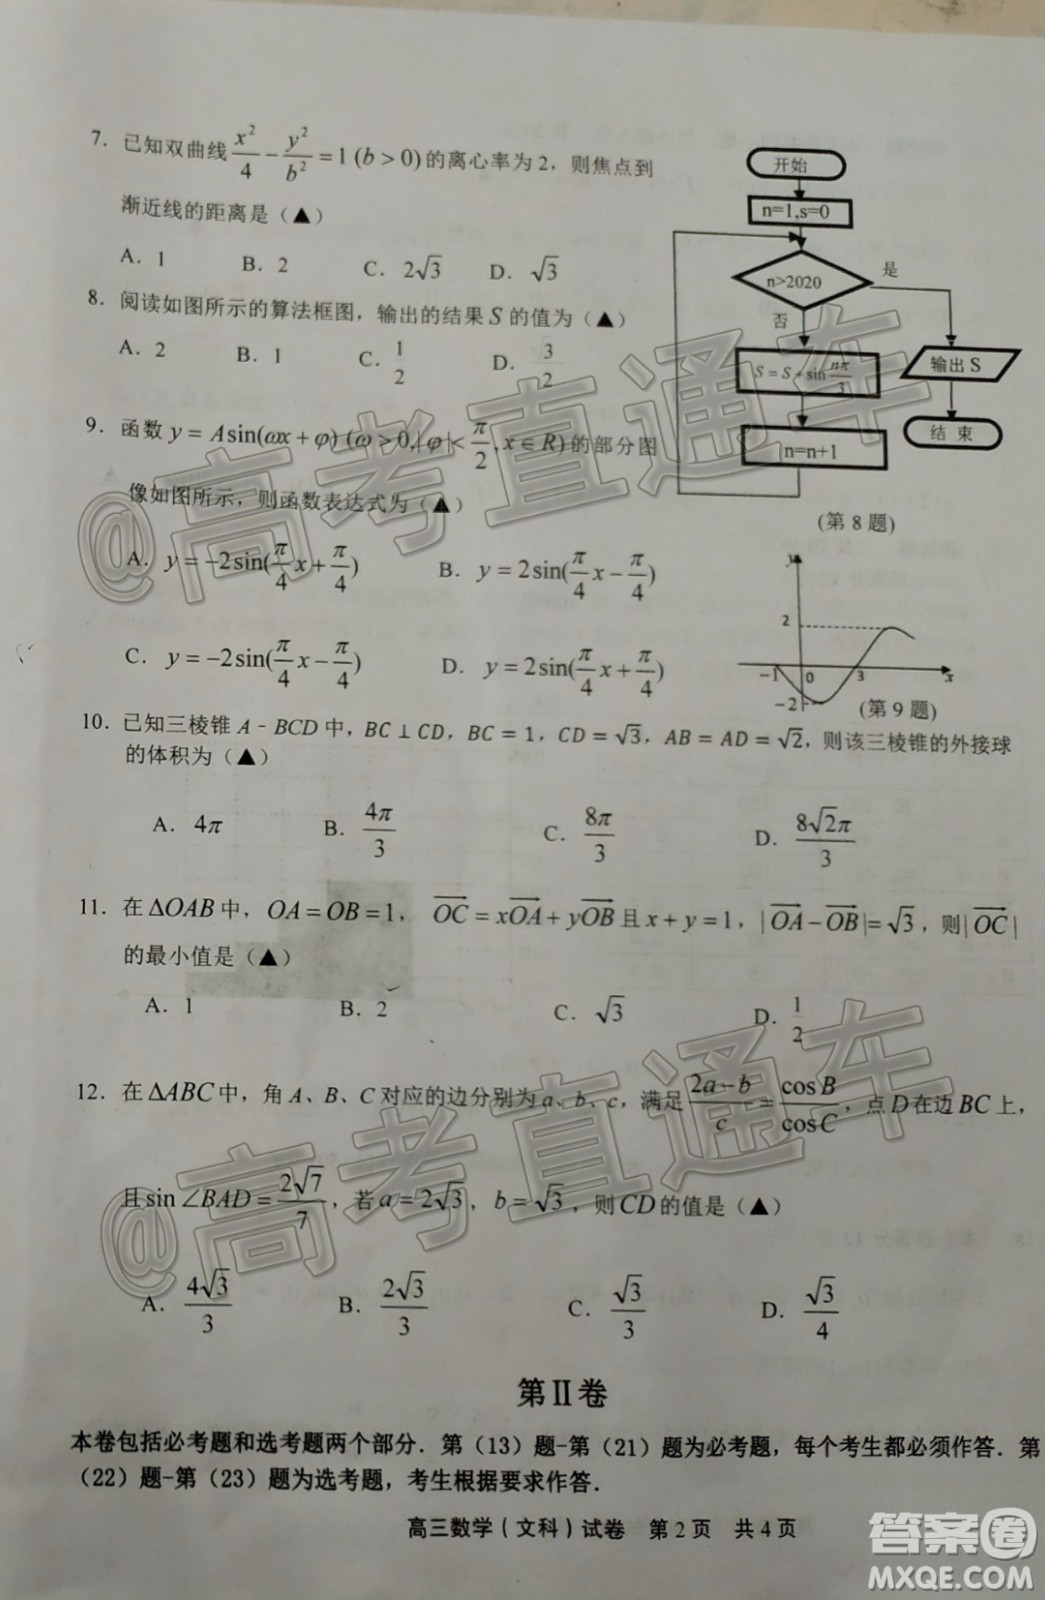 7．已知双曲线 x²/4 − y²/b² = 1 (b > 0) 的离心率为 2，则焦点到
渐近线的距离是（▲）
A．1 B．2 C．2√3 D．√3
8．阅读如图所示的算法框图，输出的结果 S 的值为（▲）
A．2 B．1 C．1/2 D．√3/2
开始
n=1,s=0
n>2020
是
否
S = S + sin nπ/3
输出 S
n=n+1
结 束
(第 8 题)
9．函数 y = Asin(ωx + φ) (ω > 0,|φ| < π/2, x ∈ R) 的部分图
像如图所示，则函数表达式为（▲）
A．y = −2sin(π/4 x + π/4) B．y = 2sin(π/4 x − π/4)
C．y = −2sin(π/4 x − π/4) D．y = 2sin(π/4 x + π/4)
y
2
−1 0 3 x
−2
(第 9 题)
10．已知三棱锥 A - BCD 中，BC ⊥ CD，BC = 1，CD = √3，AB = AD = √2，则该三棱锥的外接球
的体积为（▲）
A．4π B．4π/3 C．8π/3 D．8√2π/3
11．在 ΔOAB 中，OA = OB = 1， OC→ = xOA→ + yOB→ 且 x + y = 1，|OA→ − OB→| = √3，则|OC→|
的最小值是（▲）
A．1 B．2 C．√3 D．1/2
12．在 ΔABC 中，角 A、B、C 对应的边分别为 a、b、c，满足 (2a−b)/c = cosB/cosC，点 D 在边 BC 上，
且 sin∠BAD = 2√7/7，若 a = 2√3，b = √3，则 CD 的值是（▲）
A．4√3/3 B．2√3/3 C．√3/3 D．√3/4
第Ⅱ卷
本卷包括必考题和选考题两个部分．第（13）题-第（21）题为必考题，每个考生都必须作答．第
（22）题-第（23）题为选考题，考生根据要求作答．
高三数学（文科）试卷 第 2 页 共 4 页
@高考直通车
@高考直通车
答案圈
MXQE.COM